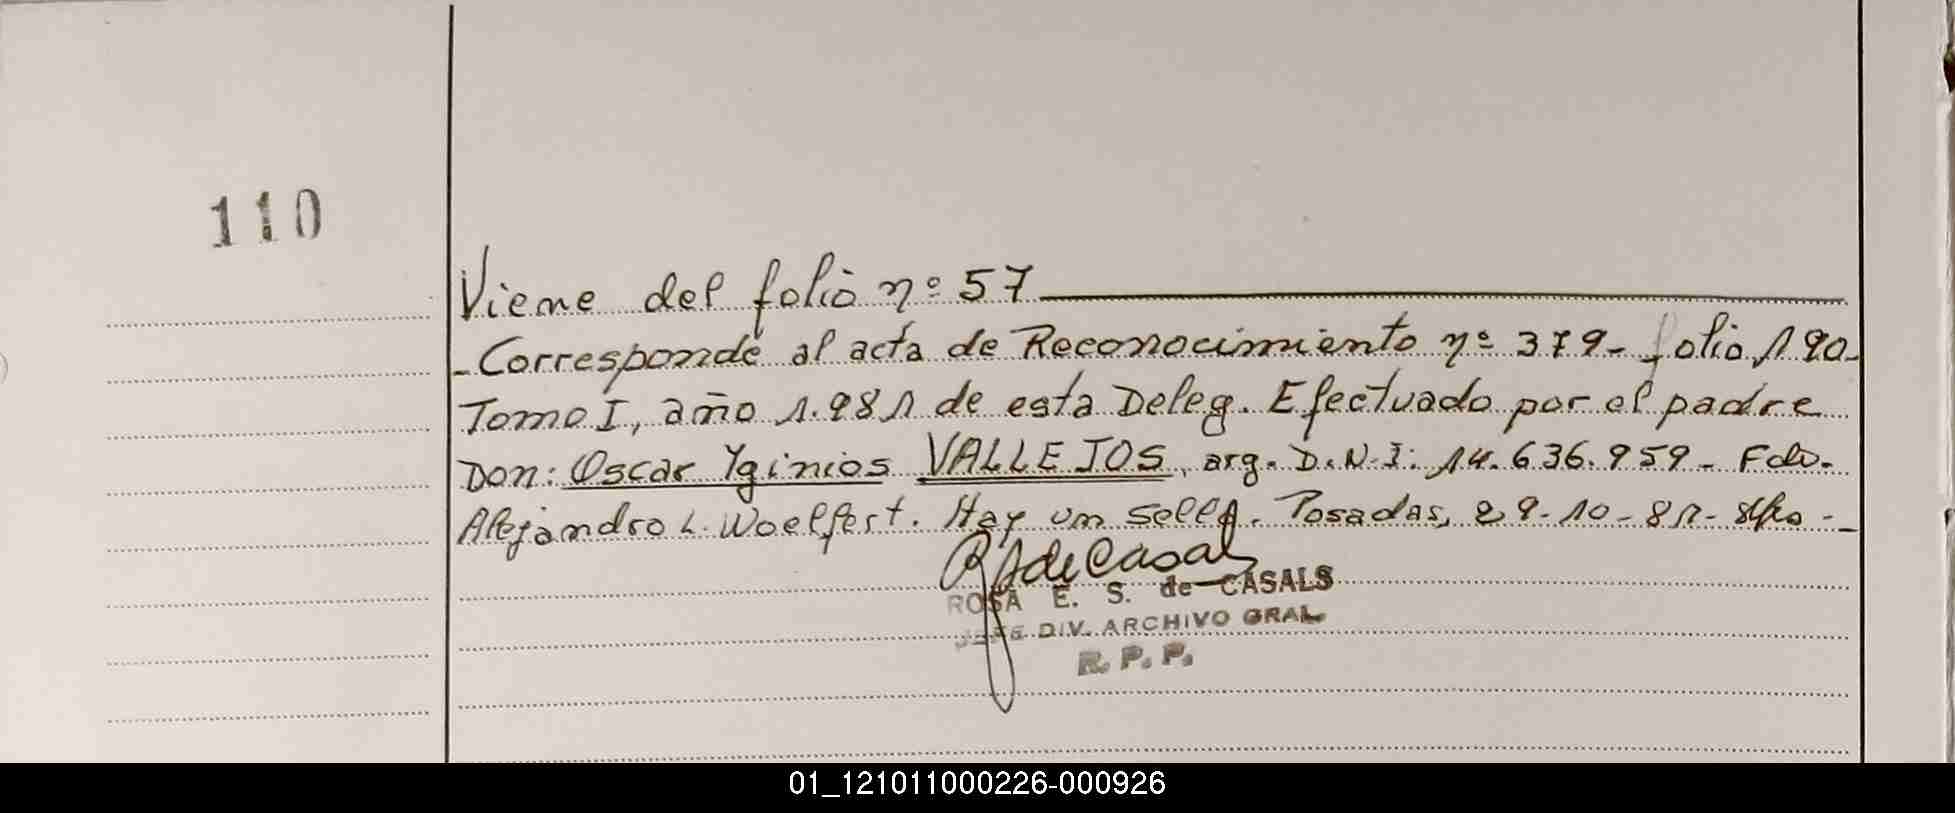 110
Viene del folio nº 57
- Corresponde al acta de Reconocimiento nº 379 - folio 190-
Tomo I, año 1.981 de esta Deleg. Efectuado por el padre
Don: Oscar Yginios VALLEJOS, arg. D.N.I: 14.636.959 - Fdo.
Alejandro L. Woelfert. Hay un sello. Posadas, 29-10-81-
ROSA E. S. de CASALS
JEFE DIV. ARCHIVO GRAL
R. P. P.
01_121011000226-000926